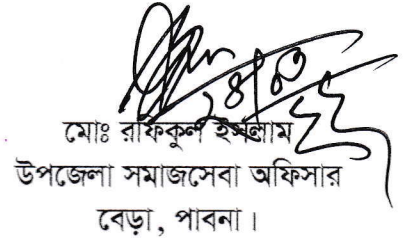 মোঃ রফিকুল ইসলাম
উপজেলা সমাজসেবা অফিসার
বেড়া, পাবনা।